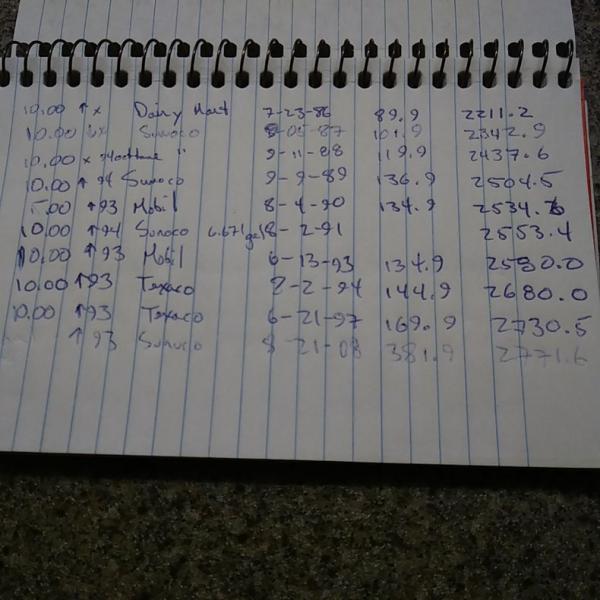 10.00 ↑ x Dairy Mart 7-23-86 89.9 2211.2
10.00 Sunoco 8-05-87 101.9 2342.9
10.00 x 94octane " 9-11-88 119.9 2437.6
10.00 ↑ 94 Sunoco 9-9-89 136.9 2504.5
5.00 ↑93 Mobil 8-4-90 134.9 2534.6
10.00 ↑94 Sunoco 6.671gal 8-2-91 2553.4
10.00 ↑93 Mobil 6-13-93 134.9 2580.0
10.00 ↑93 Texaco 8-2-94 144.9 2680.0
10.00 ↑93 Texaco 6-21-97 169.9 2730.5
↑93 Sunoco 8 21-08 381.9 2771.6